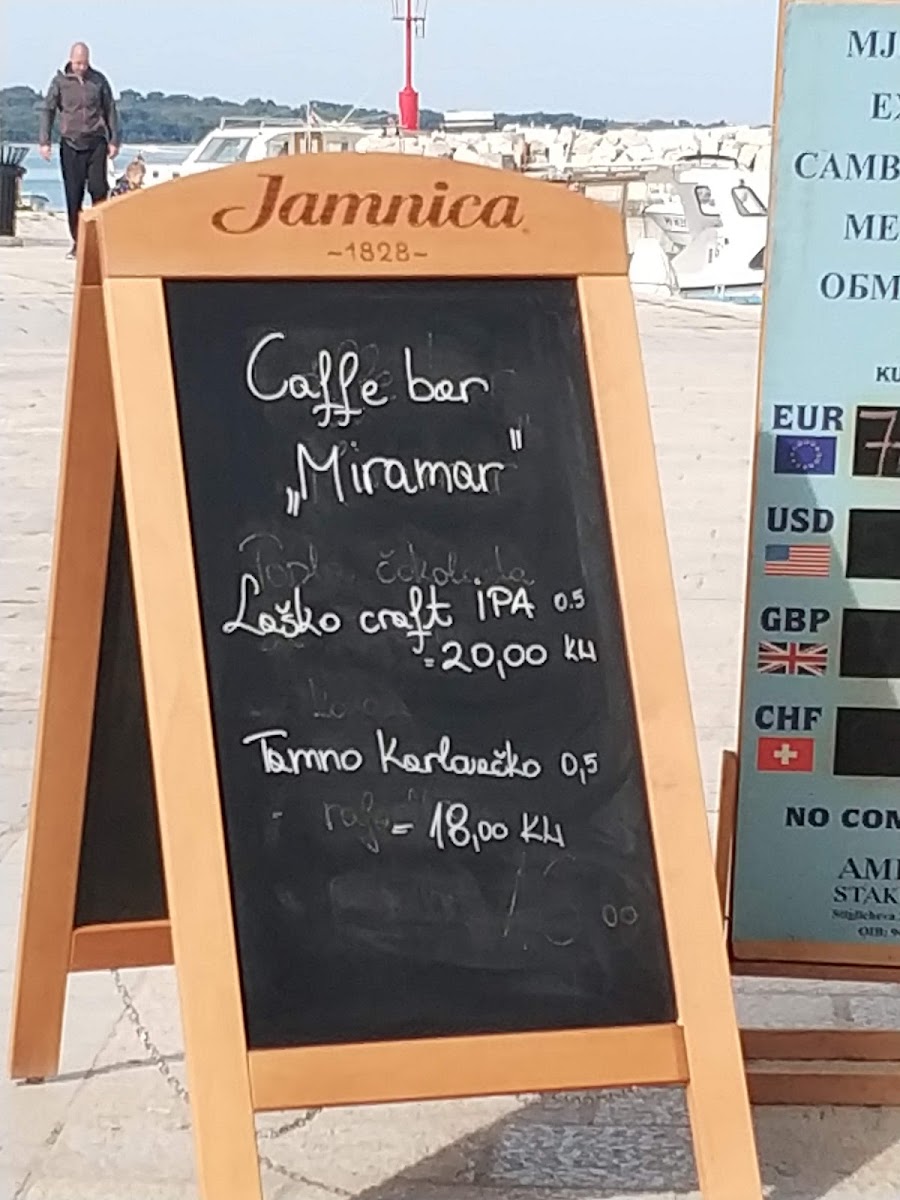 Jamnica
~1828~
Caffe bar
„Miramar"
Topla čokolada
Laško craft iPA 0.5
=20,00 KN
Tamno Karlovačko 0,5
= 18,00 KN
00
MJ
E
CAMB
ME
ОБМ
KU
EUR 7
USD
GBP
CHF
NO COM
AM
STAK